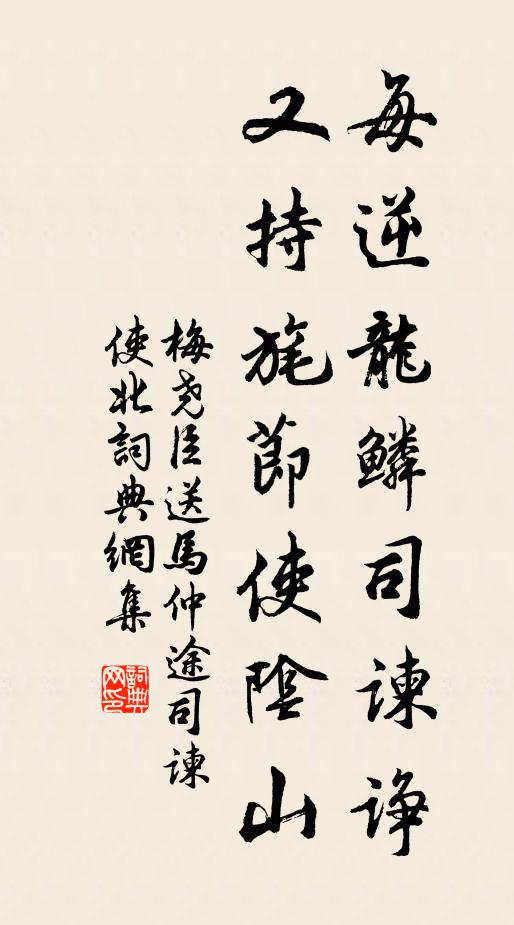 每逆龍鱗司諫諍
又持旄節使陰山
梅堯臣送馬仲途司諫
使北詞典網集
詞典网印